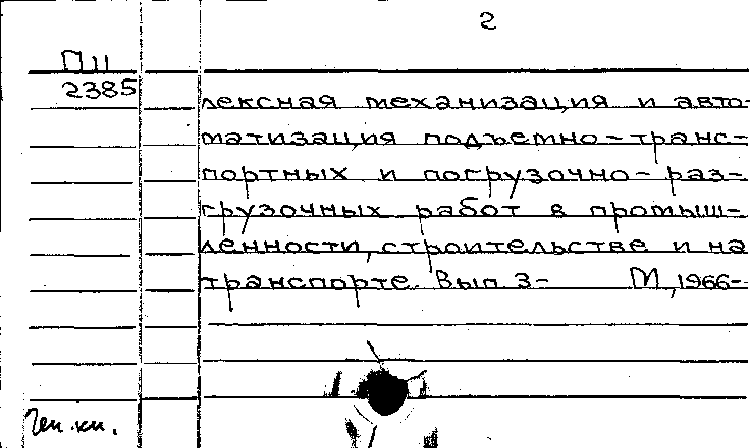 2
П 11
2385
лексная механизация и авто-
матизация подъемно-транс-
портных и погрузочно-раз-
грузочных работ в промыш-
ленности, строительстве и на
транспорте. Вып. 3- М., 1966-